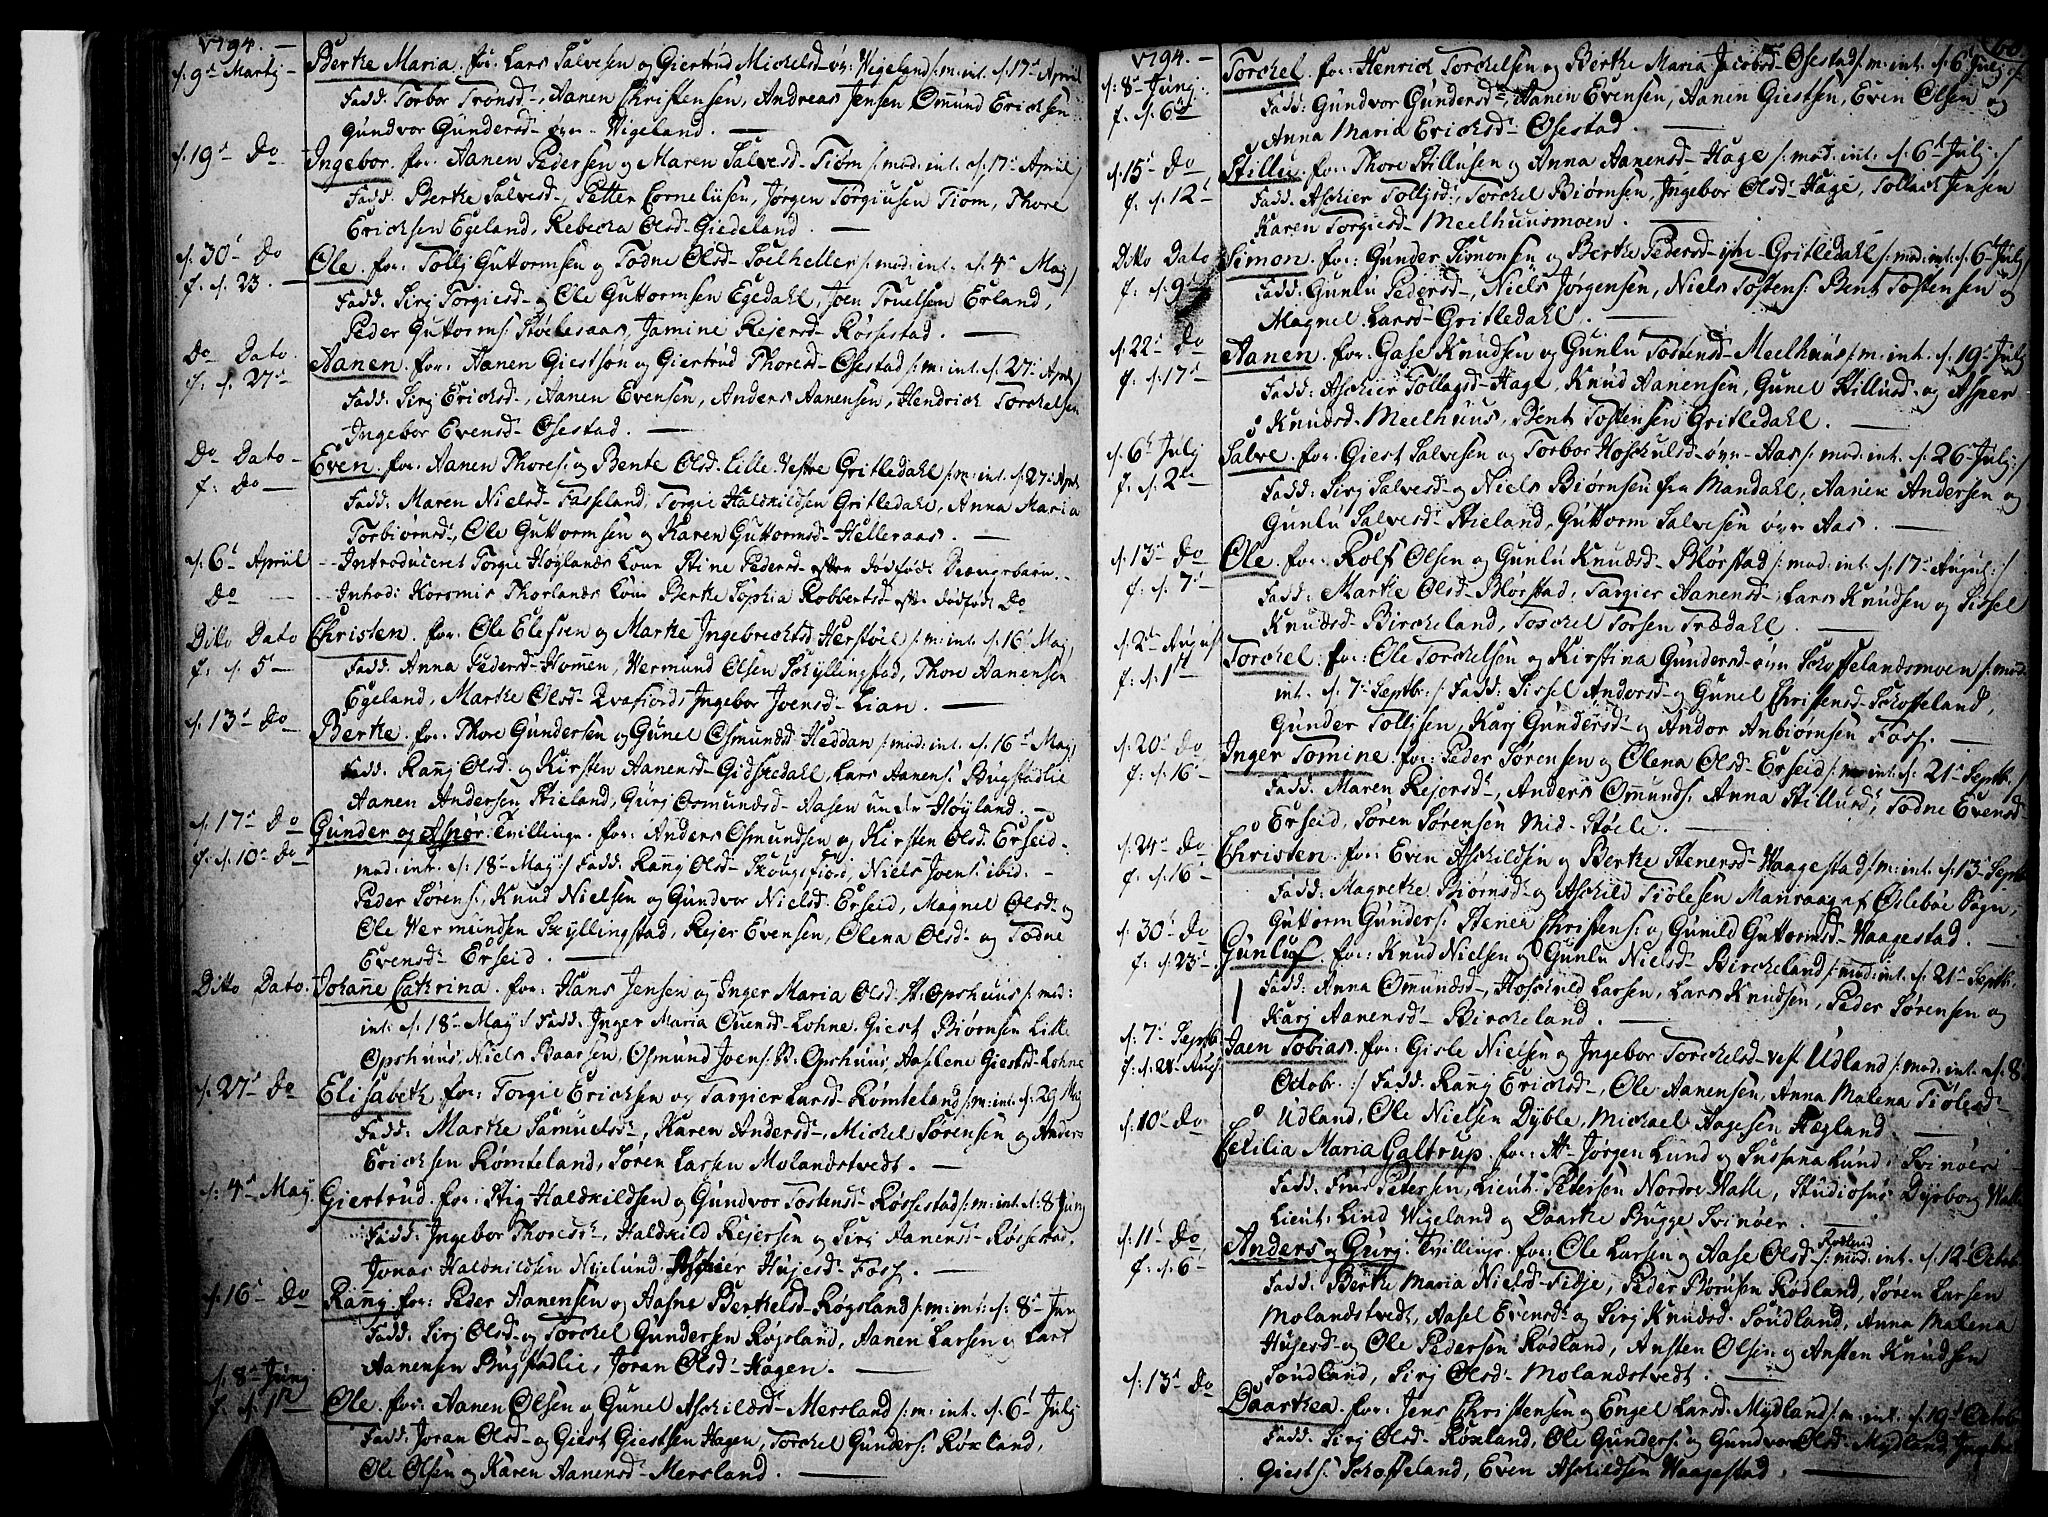 1794.
d. 9de Martij Berthe Maria. for: Lars Salvesen og Giertrud Michelsd. øv: Wigeland /:m: int. d. 17de Apriil
Fadd: Torbor Tronsd., Aanen Christensen, Andreas Jensen Omund Erichsen
Gundvor Gundersd. øvr. Wigeland.
d. 19de Do Ingebor. for: Aanen Pedersen og Maren Salvesd. Tiom /: mod: int. d. 17de Apriil
Fadd: Berthe Salvesd., Petter Corneliusen, Jørgen Torgiusen Tiom, Thore
Erichsen Egeland, Rebecka Olsd. Giedeland.
d. 30te Do Ole. for: Tollj Guttormsen og Todne Olsd. Toelheller /: mod: int. d. 4de Maj
f. d. 23. Fadd: Sirj Torgiesd. og Ole Guttormsen Egedahl, Joen Truelsen Erland,
Peder Guttorms: Støelesaas, Jamine Rejersd. Røssestad.
Do Dato Aanen. for: Aanen Giestsøn og Giertrud Thoresd. Osestad /:m: int. d. 27de April
f. d. 27de Fadd: Sirj Erichsd., Aanen Evensen, Anders Aanensen, Hendrich Torchelsen
Ingebor Evensd. Osestad.
Do Dato Even. for: Aanen Thores: og Bente Olsd. Lille Vestre Gritledahl /:m: int. d. 27de April
f: Do Fadd: Maren Nielsd. Fasseland, Torgie Haldvildsen Gritledahl, Anna Maria
Torbiørnsd., Ole Guttormsen og Karen Guttormsd. Helleraas.
d. 6te Apriil Introduceret Torgie Høylands Kone Stine Pedersd. efter dødfød: Drængebarn.
Do Inhod: Kersmis Thorlands Kone Berthe Sophia Robbertsd. eft: dødfød: Do
Ditto Dato Christen. for: Ole Elefsen og Marthe Ingebrechtsd. Herstøel /: m: int. d. 16de Maj
f: d. 5 Fadd: Anna Pedersd. Homen, Vermund Olsen Schyllingstad, Thore Aanensen
Egeland, Marthe Olsd. Qvafiord, Ingebor Joensd. Lian.
d. 13de Do Berthe. for: Thore Gundersen og Gunel Osmundsd. Heddan /: mod: int. d. 16de Maj
Fadd: Rangj Olsd. og Kirsten Aanensd. Gidskedahl, Lars Aanens: Bugstadlie
Aanen Andersen Stieland, Gurj Osmundsd. Aasen under Høyland.
d. 17de Do Gunder og Asnør: Tvillinge. for: Anders Osmundsen og Kirsten Olsd. Erseid.
f. d. 10de Do mod: int. d. 18de Maij/ Fadd: Rangj Olsd. Skougsfiord, Niels Joens: ibid.
Peder Sørens:, Knud Nielsen og Gundvor Nielsd. Erseid, Magnel Olsd. og
Ole Vermundsen Skyllingstad, Rejer Evensen, Olena Olsd. og Todne
Evensd. Erseid.
Ditto Dato Johanne Cathrina. for: Hans Jensen og Inger Maria Olsd. St. Opshuus /: mod:
int: d. 18de Maij :/ Fadd: Inger Maria Ouensd. Lohne, Giest Biørnsen Lille
Opshuus, Niels Baarsen, Osmund Joens: St. Opshuus, Aaslene Giestsd. Lohne
d. 27de Do Elisabeth. for: Torgie Erichsen og Targier Larsd. Rømteland /:m: int. d. 29 Maj
Fadd: Marthe Samuelsd., Karen Andersd., Michel Sørensen og Anders
Erichsen Rømteland, Søren Larsen Molandstvedt.
d. 4de Maij Giertrud. for: Stig Haldvildsen og Gundvor Tostensd. Røssestad /:m: int. d. 8 Junj
Fadd: Ingebor Thoresd., Haldvild Rejersen og Sirj Aanensd. Røssestad,
Jonas Haldvildsen Nyelund, Aschier Hujesd. Foss.
d. 16de Do Rangj. for: Peder Aanensen og Aasne Berthelsd. Røgsland /:m: int: d. 8de Jun
Fadd: Sirj Olsd. og Torchel Gundersen Røgsland, Aanen Larsen og Lars
Aanensen Bugstadlie, Joran Olsd. Hagen.
d. 8de Junj Ole. for: Aanen Olsen og Gunel Aschildsd. Mersland /: m: int. d. 6te Julj
f. d. 1te Fadd: Joran Olsd. og Giest Giestsen Hagen, Torchel Gunders: Røxland,
Ole Olsen og Karen Aanensd. Mersland.
1794. 60
d: 8de Junj Torchel. for: Henrich Torchelsen og Berthe Maria Jacobsd. Osestad /: m: int. d. 6te Julj :/
f. d. 6te Fadd: Gundvor Gundersd., Aanen Evensen, Aanen Giestsen, Even Olsen og
Anna Maria Erichsd. Osestad.
d. 15de Do Stillu. for: Thore Stillusen og Anna Aanensd. Hage /: mod: int: d. 6te Julj :/
f. d. 12te Fadd: Aschier Tolljsd., Torchel Biørnsen, Ingebor Olsd. Hage, Tollach Jensen
Karen Torgiesd. Meelhuusmoen.
Ditto Dato Simon. for: Gunder Simonsen og Berthe Pedersd. Gritledahl /: mod: int: d. 6te Julj
f. d. 9de Fadd: Gunlu Pedersd., Niels Jørgensen, Niels Tostens: Bent Tostensen og
Magnel Larsd. Gritledahl.
d. 22de Do Aanen. for: Gase Knudsen og Gunlu Tostensd. Meelhuus /: m: int. d. 19de Julj
f. d. 17de Fadd: Aschier Tollagsd. Hage, Knud Aanensen, Gunel Stillusd. og Asper
Knudsd. Meelhuus, Bent Tostensen Gritledahl.
d. 6te Julj Salve. for: Giest Salvesen og Torbor Hoschulsd. øvr. Aas /: mod: int. d. 26 Julj :/
f. d. 2de Fadd: Sirj Salvesd. og Niels Biørnsen fra Mandahl, Aanen Andersen og
Gunlu Salvesd. Stieland, Guttorm Salvesen øvr Aas.
d. 13de Do Ole. for: Rolf Olsen og Gunlu Knudsd. Blørstad /: mod: int. d. 17de August :/
f. d. 7de Fadd: Marthe Olsd. Blørstad, Targier Aanensd., Lars Knudsen og Sissel
Knudsd. Bircheland, Toschel Torsen Trædahl.
d. 2de August Torchel. for: Ole Torchelsen og Kirstina Gundersd. øvr Schoffelandsmoen /: mod:
f. d. 1te int. d. 7de Septbr. :/ Fadd: Sissel Andorsd. og Gunel Christensd. Schoffeland,
Gunder Tolljsen, Karj Gundersd. og Andor Anbiørnsen Foss.
d. 20de Do Inger Tomine. for: Peder Sørensen og Olena Olsd. Erseid /: m: int: d. 21de Septbr. :/
f. d. 16de Fadd: Maren Rejersd., Anders Omunds: Anna Stillusd., Todne Evensd.
Erseid, Søren Sørensen Mid-Støele.
d. 24de Do Christen. for: Even Aschildsen og Berthe Stenersd. Waagestad /: m: int. d. 13 Septbr
f. d. 16de Fadd: Magrethe Biørnsd. og Aschild Tiølesen Manraag af Øslebøe Sogn,
Guttorm Gunders: Stener Christens: og Gunild Guttormsd. Waagestad.
d. 30te Do Gunluf. for: Knud Nielsen og Gunlu Nielsd. Bircheland /: mod: int. d. 21de Septb.
f. d. 23de Fadd: Anna Omundsd., Hoschuld Larsen, Lars Knudsen, Peder Sørensen og
Karj Aanensd. Bircheland.
d. 7de Septbr Jaen Tobias. for: Gisle Nielsen og Ingebor Torchelsd. vest. Udland /: mod: int. d. 8
f. d. 28 Aug. Octobr. :/ Fadd: Rangj Erichsd., Ole Aanensen, Anna Malena Tiølesd.
Udland, Ole Nielsen Dyble, Michael Aagesen Hægland
d. 10de Do Cecilia Maria Galtrup. for: Hr. Jørgen Lund og Susanna Lund. Svinøer
Fadd: Frue Petersen, Lieut: Petersen Nordre Walle, Studiosus Dyrborg Walle
Lieut: Lind Wigeland og Daarthe Bugge Svinøer.
d. 11te Do Anders og Gurj. Tvillinge. for: Ole Larsen og Aase Olsd. Rødland /: mod: int. d. 12te Octob.
f. d. 6 Fadd: Berthe Maria Nielsd. Tidje, Peder Børusen Rødland, Søren Larsen
Molandstvedt, Aasel Evensd. og Sirj Knudsd. Søudland, Anna Malena
Hujesd. og Ole Pedersen Rødland, Ansten Olsen og Ansten Knudsen
Søudland, Sirj Olsd. Molandstvedt.
d. 13de Do Daarthea. for: Jens Christensen og Engel Larsd. Mydland /: m: int. d. 19de Octob.
Fadd: Sirj Olsd. Røxland, Ole Gunders: og Gundvor Olsd. Mydland,
Giests: Schoffeland, Even Aschildsen Waagestad.